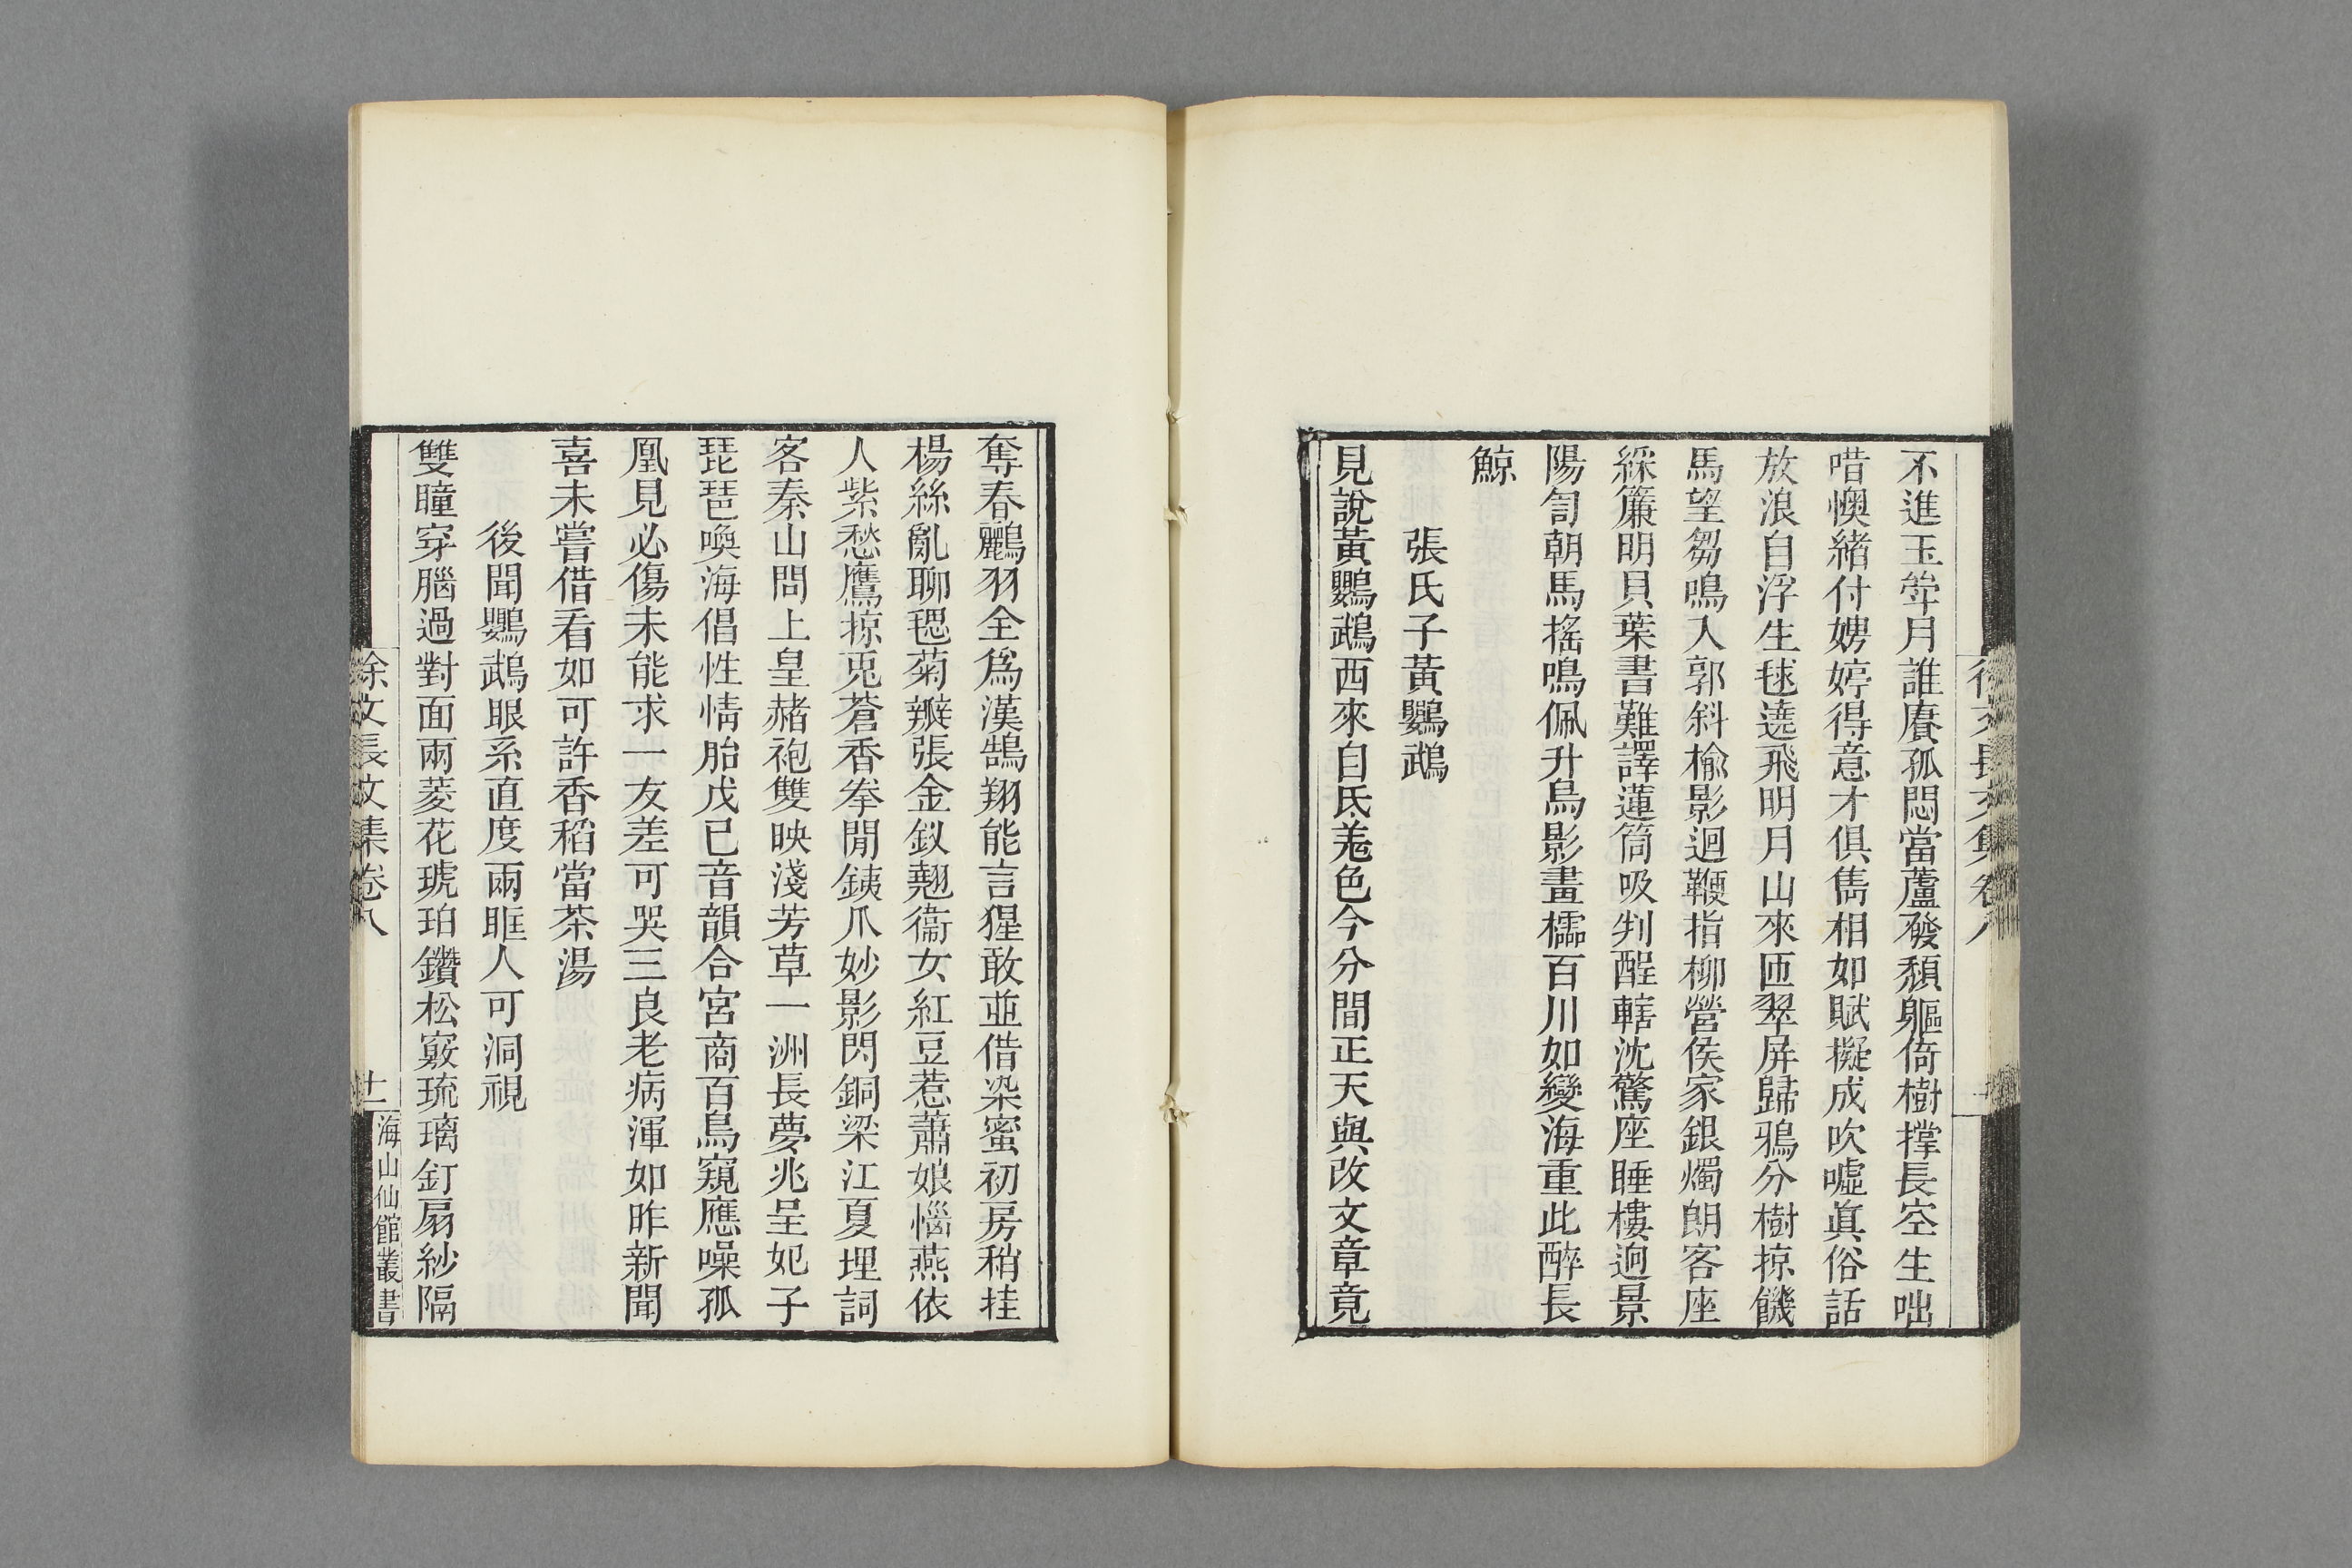 不進玉斝月誰賡孤悶當蘆發頽軀倚樹撑長空生咄
唶懊緒付娉婷得意才俱雋相如賦擬成吹噓眞俗話
放浪自浮生毬遶飛明月山來匝翠屏歸鴉分樹掠饑
馬望芻鳴入郭斜榆影迴鞭指柳營侯家銀燭朗客座
綵簾明貝葉書難譯蓮筒吸判酲轄沈驚座睡樓迥景
陽訇朝馬搖鳴佩升烏影畫櫺百川如變海重此醉長
鯨
張氏子黃鸚鵡
見說黃鸚鵡西來自氐羗色今分間正天與改文章竟
奪春鸝羽全爲漢鵠翔能言猩敢並借染蜜初房稍挂
楊絲亂聊毸菊瓣張金釵翹衞女紅豆惹蕭娘惱燕依
人紫愁鷹掠兎蒼香拳閒銕爪妙影閃銅梁江夏埋詞
客秦山問上皇赭袍雙映淺芳草一洲長夢兆呈妃子
琵琶喚海倡性情胎戊已音韻合宮商百鳥窺應噪孤
凰見必傷未能求一友差可哭三良老病渾如昨新聞
喜未嘗借看如可許香稻當茶湯
後聞鸚鵡眼系直度兩眶人可洞視
雙瞳穿腦過對面兩菱花琥珀鑽松竅琉璃釘扇紗隔
徐文長文集卷八
十一
海山仙館叢書